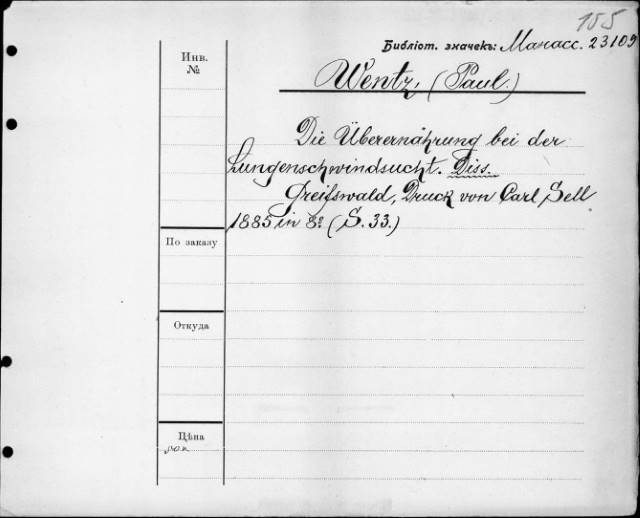 155
Библіот. значекъ: Манасс. 23109
Инв.
№
Wentz, (Paul.)
Die Überernährung bei der
Lungenschwindsucht. Diss.
Greifswald, Druck von Carl Sell
1885 in 8º (S. 33.)
По заказу
Откуда
Цѣна